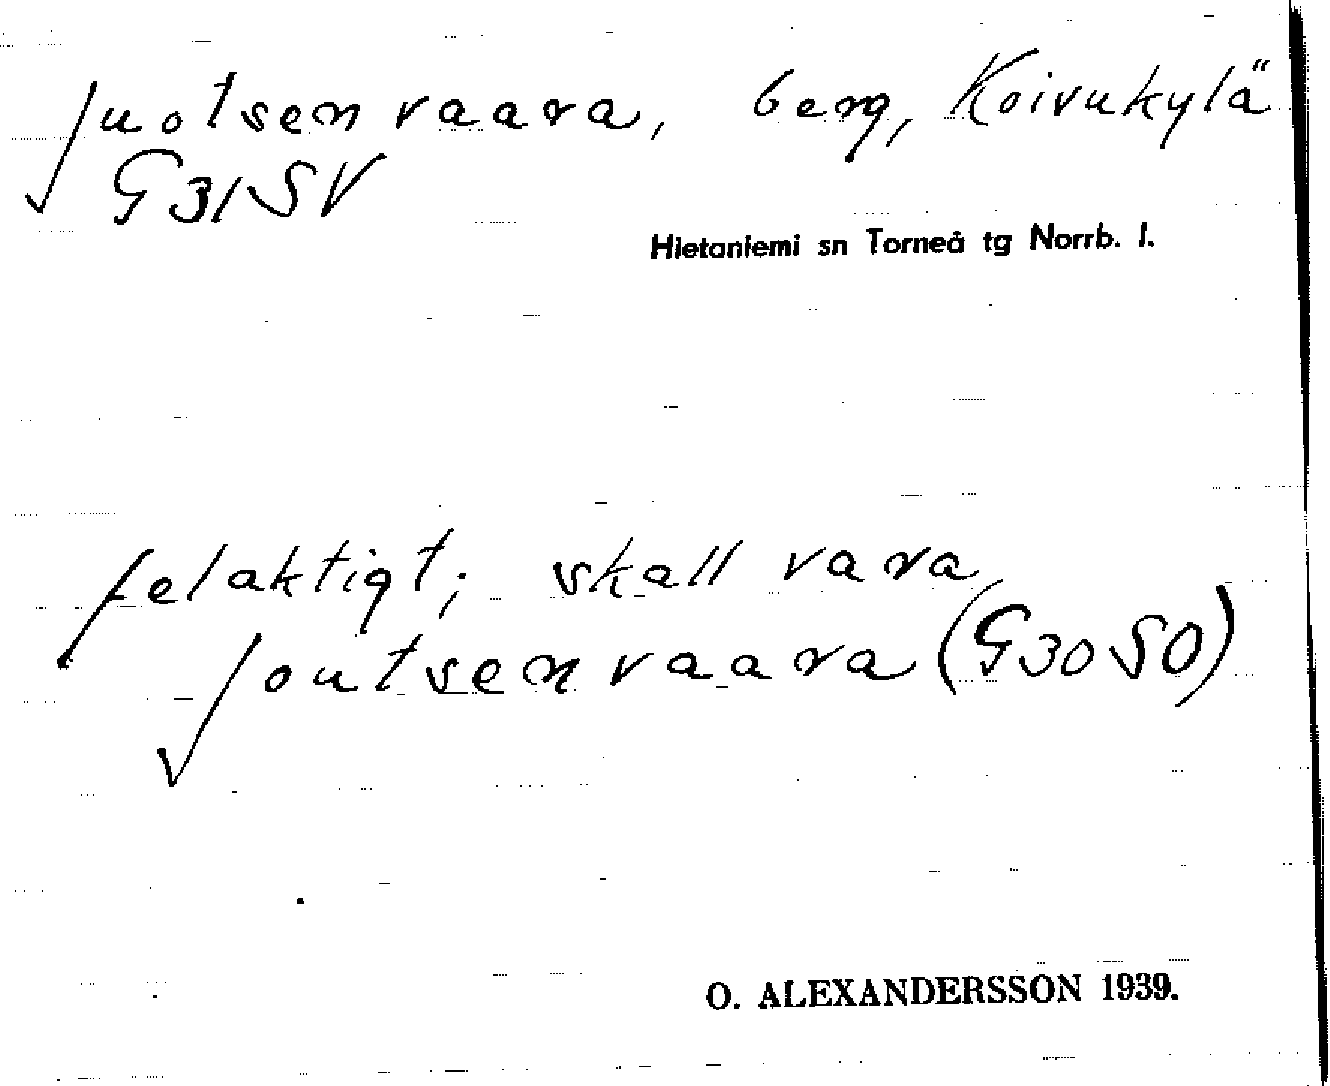 Juotsenvaara, berg, Koivukylä
G31SV
Hietaniemi sn Torneå tg Norrb. l.
felaktigt; skall vara
Joutsenvaara (G30SO)
O. ALEXANDERSSON 1939.